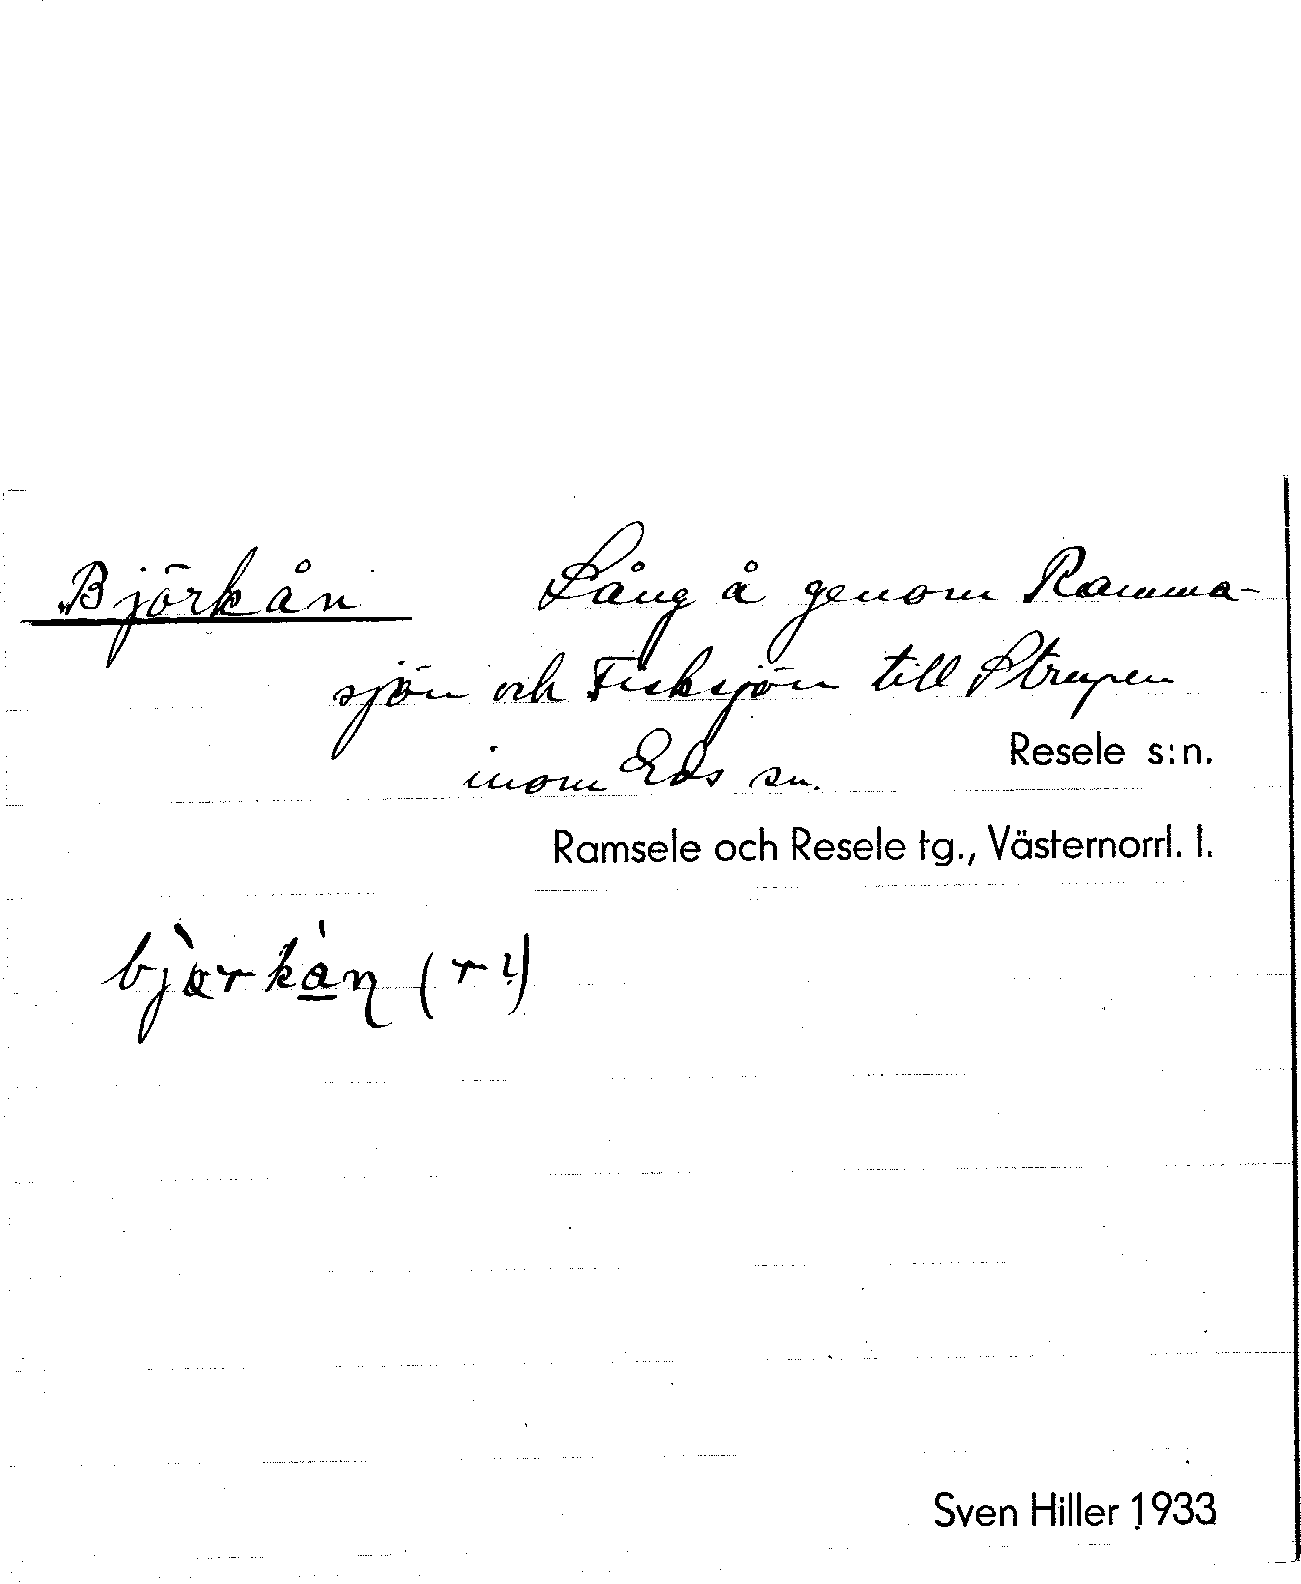 Björkån Lång å genom Ramma-
sjön och Fisksjön till Strupen
inom Eds sn. Resele s:n.
Ramsele och Resele tg., Västernorrl. l.
bjærkàn (r!)
Sven Hiller 1933